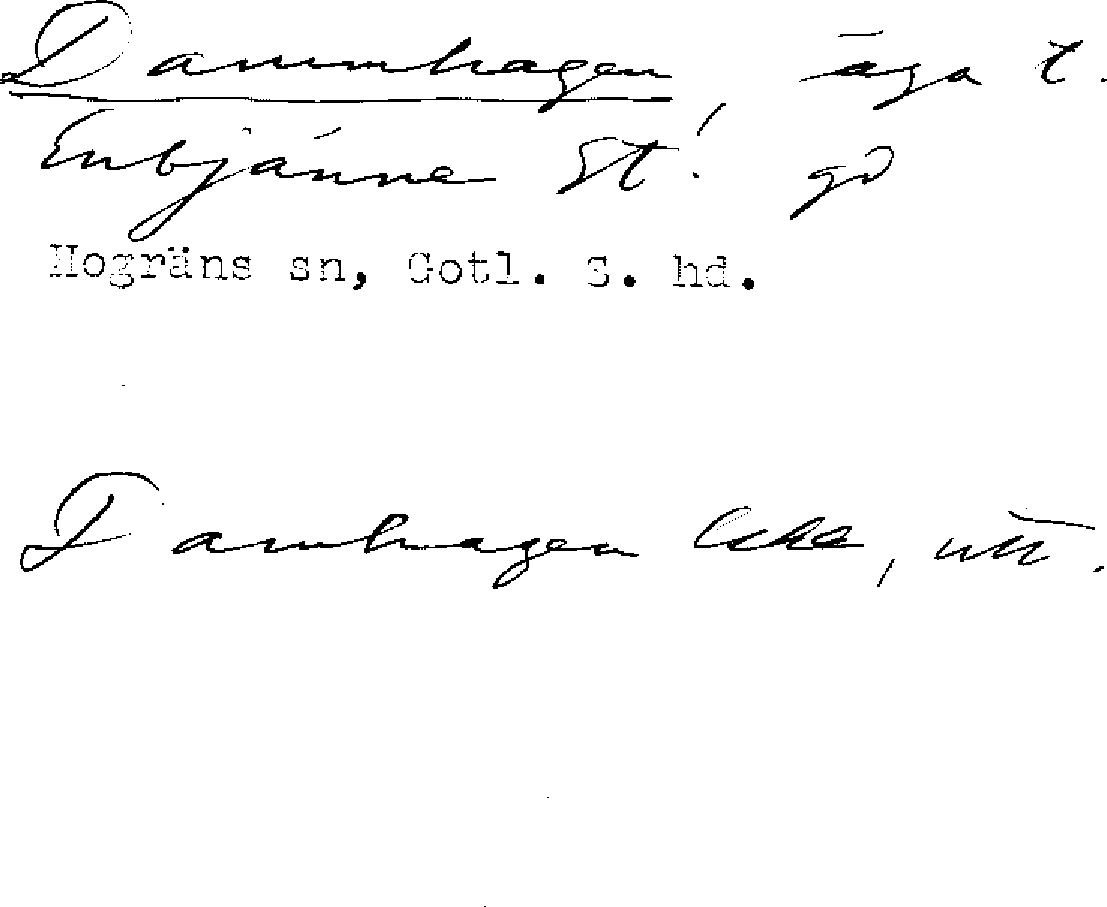 Dammhagen, äga t.
Enbjänne St. gd
Hogräns sn, Gotl. S. hd.
Damhagen Uske, utt.